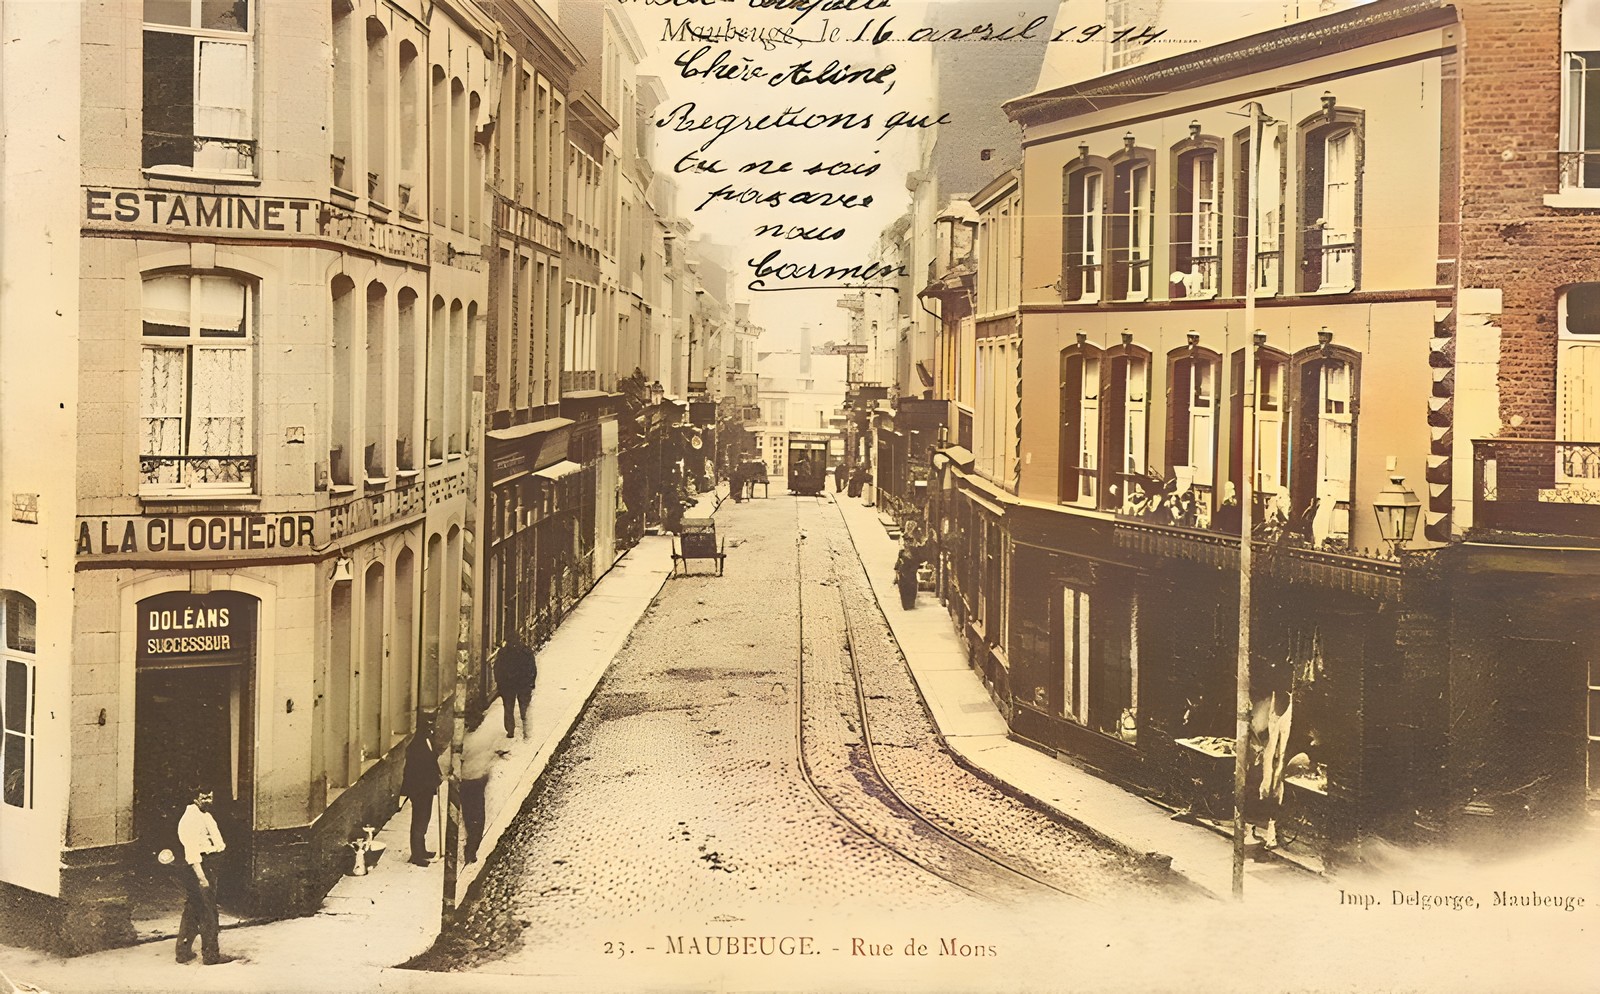 Maubeuge, le 16 avril 1914
Chère Aline,
Regrettons que
tu ne sois
pas avec
nous
Carmen
ESTAMINET
A LA CLOCHE D'OR
DOLÉANS
SUCCESSEUR
Imp. Delgorge, Maubeuge
23. - MAUBEUGE. - Rue de Mons